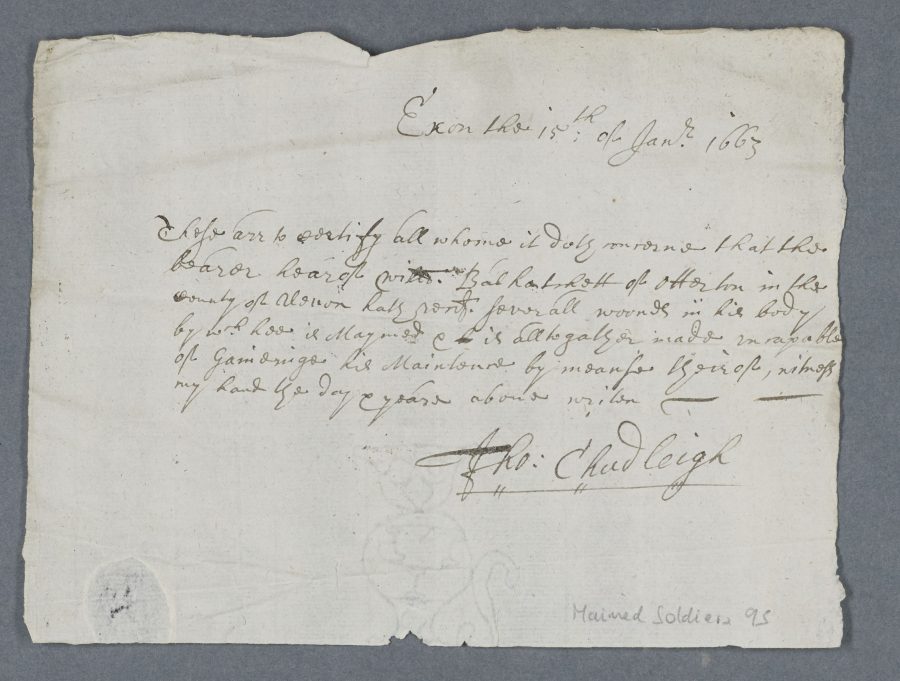 Exon the 15th: of Janr. 1663
These arr to certify all whome it doth concerne that the
bearer hearof Willm. Bab hatchett of Otterton in the
County of Devon hath recd. severall woonds in his body
by wch hee is Maymed & is alltogather made incapable
of Gaineinge his Maintence by meanse theirof, witness
my hand the day & yeare above writen
Tho: Chudleigh
Maimed Soldiers 95